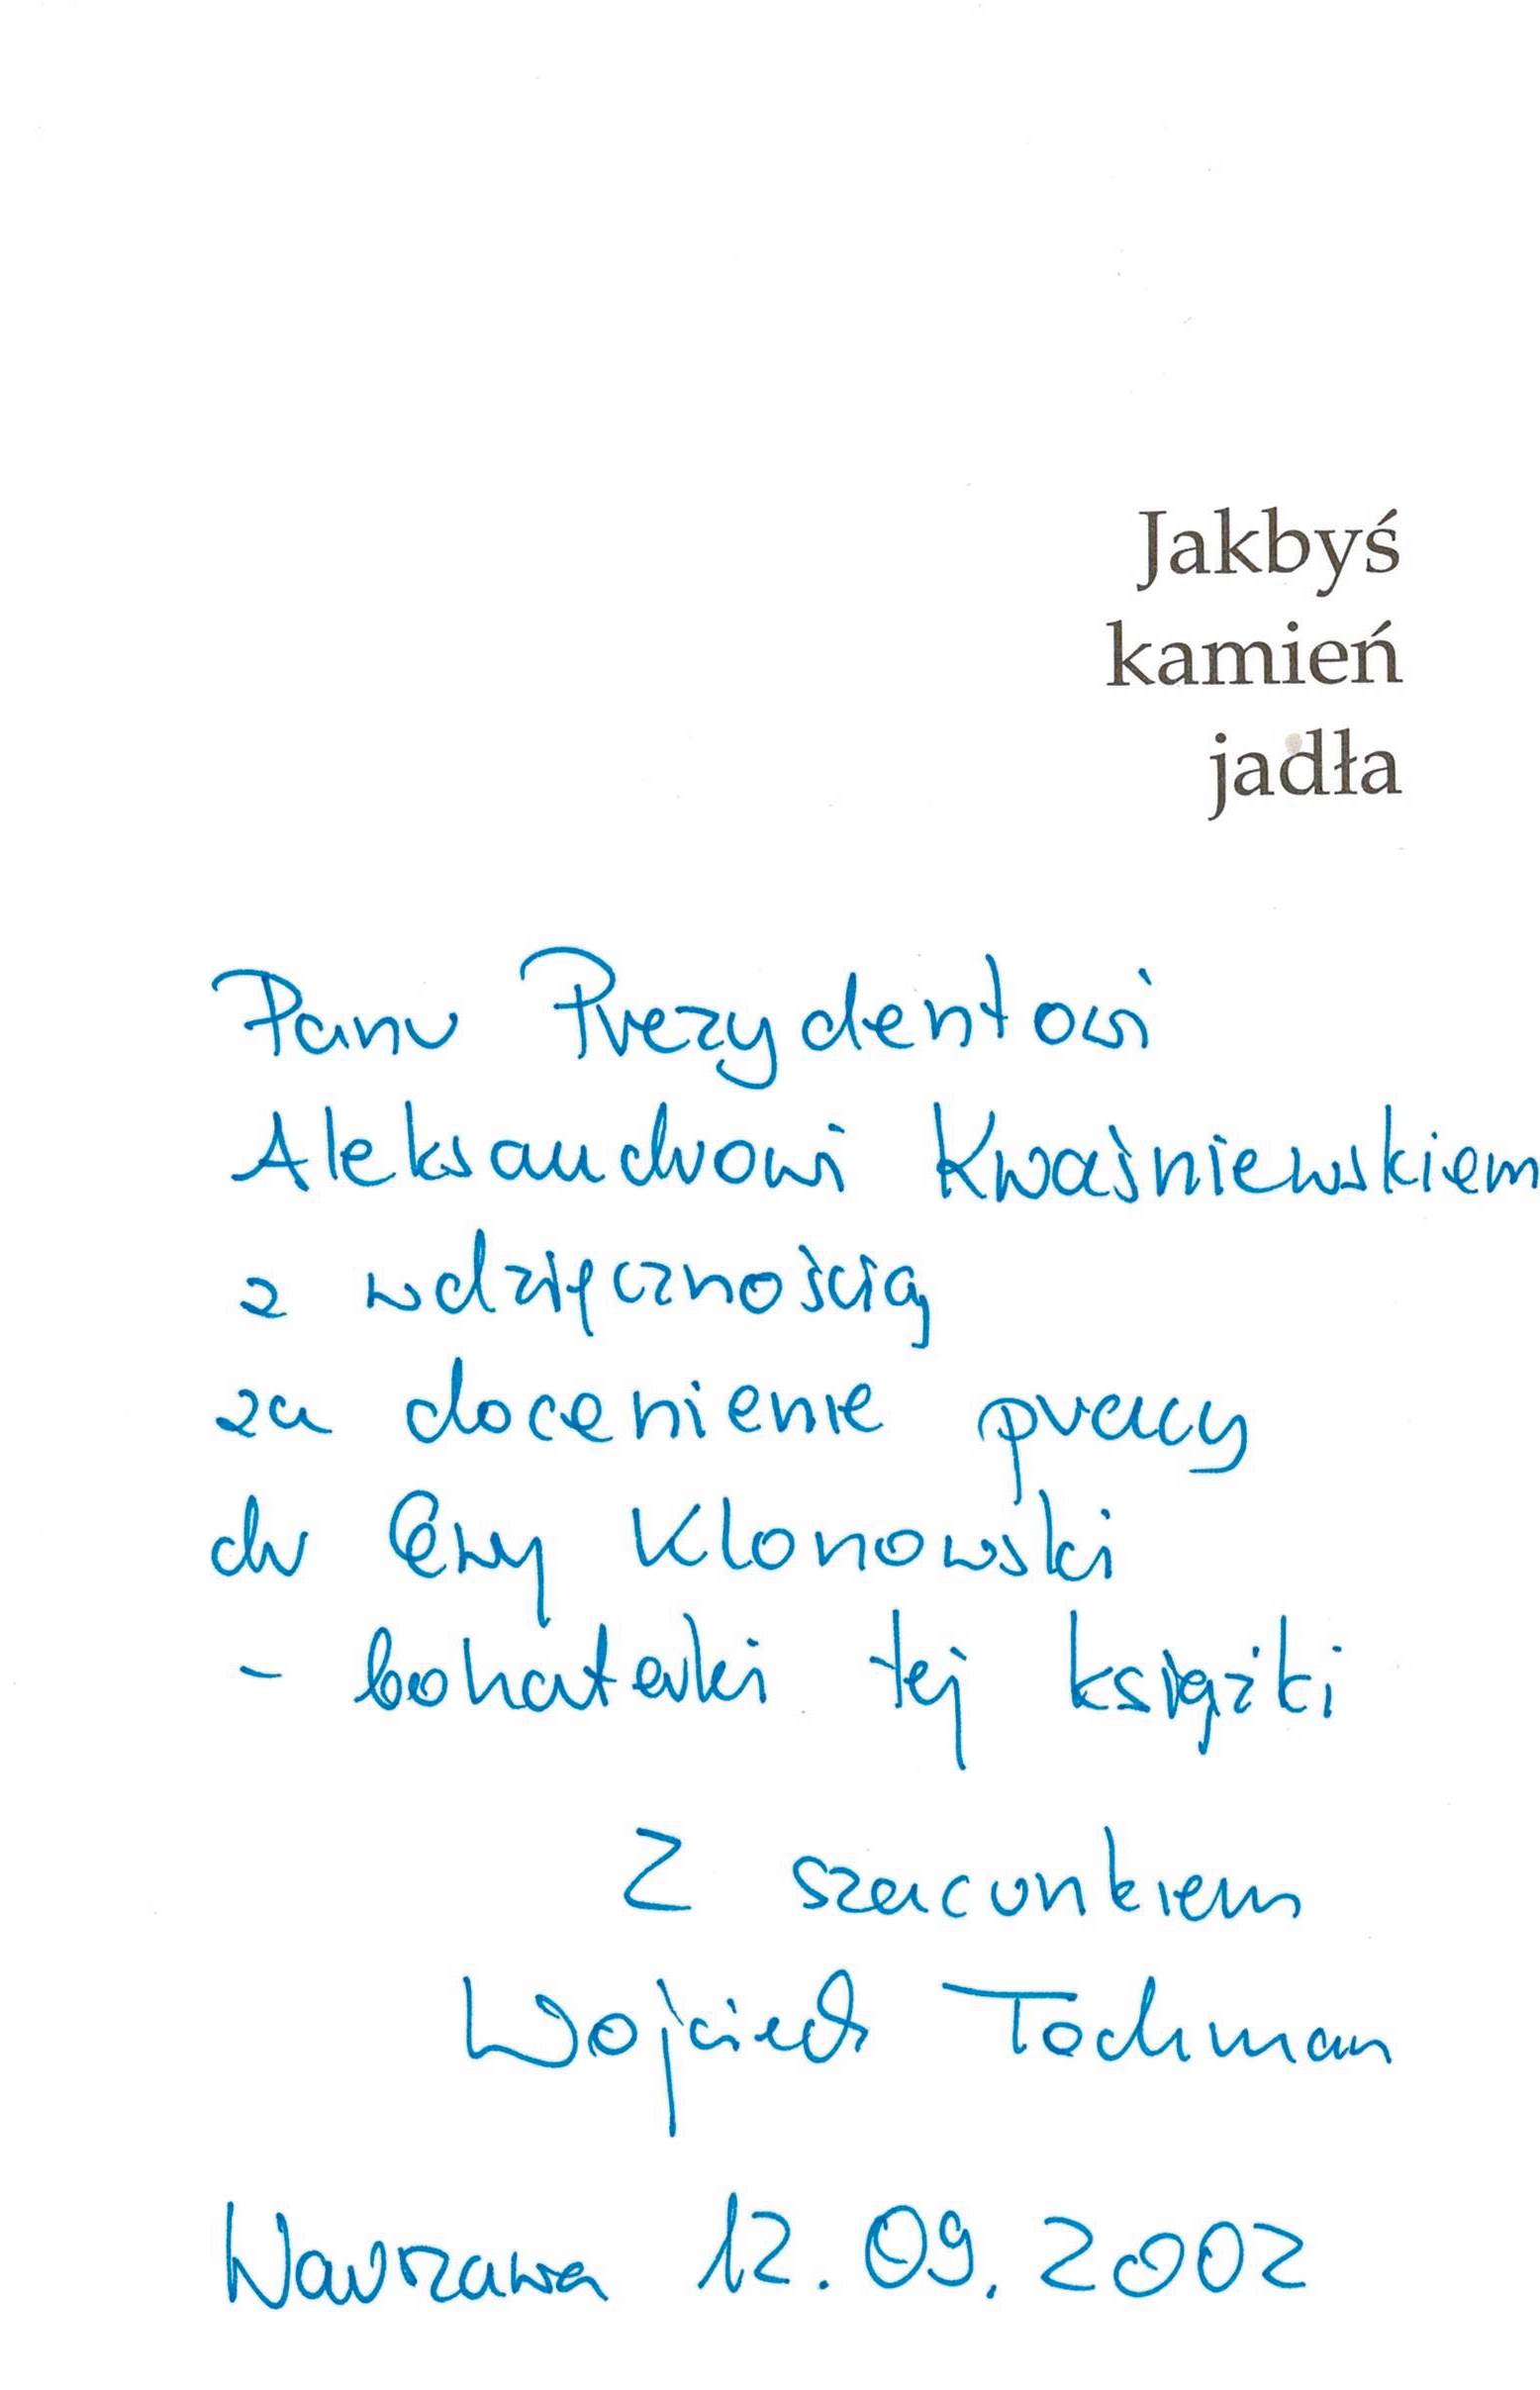 Jakbyś
kamień
jadła
Panu Prezydentowi
Aleksandrowi Kwaśniewskiem
z wdzięcznością
za docenienie pracy
dr Ewy Klonowski
- bohaterki tej książki
Z szacunkiem
Wojciech Tochman
Warszawa 12.09.2002